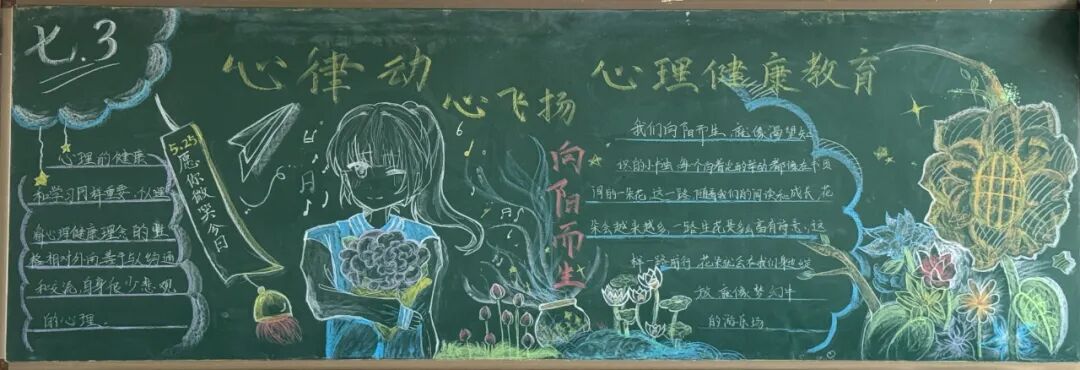 七.3
心律动
心飞扬
心理健康教育
心理的健康
和学习同样重要,个人理
每心理健康理念的
格相对外向善于与人沟通
和交流,自身很少悲观
的心理.
5.25
愿你微笑今日
向阳而生
我们向阳而生,就像渴望知
识的小虫,每个向着走的
间的一朵花,这一路,随着我们的阅读和成长,花
朵会越来越多,一路生花是多么富有诗意,这
样一路前行,花朵就会在我们身边绽
放,就像梦幻中
的游乐场